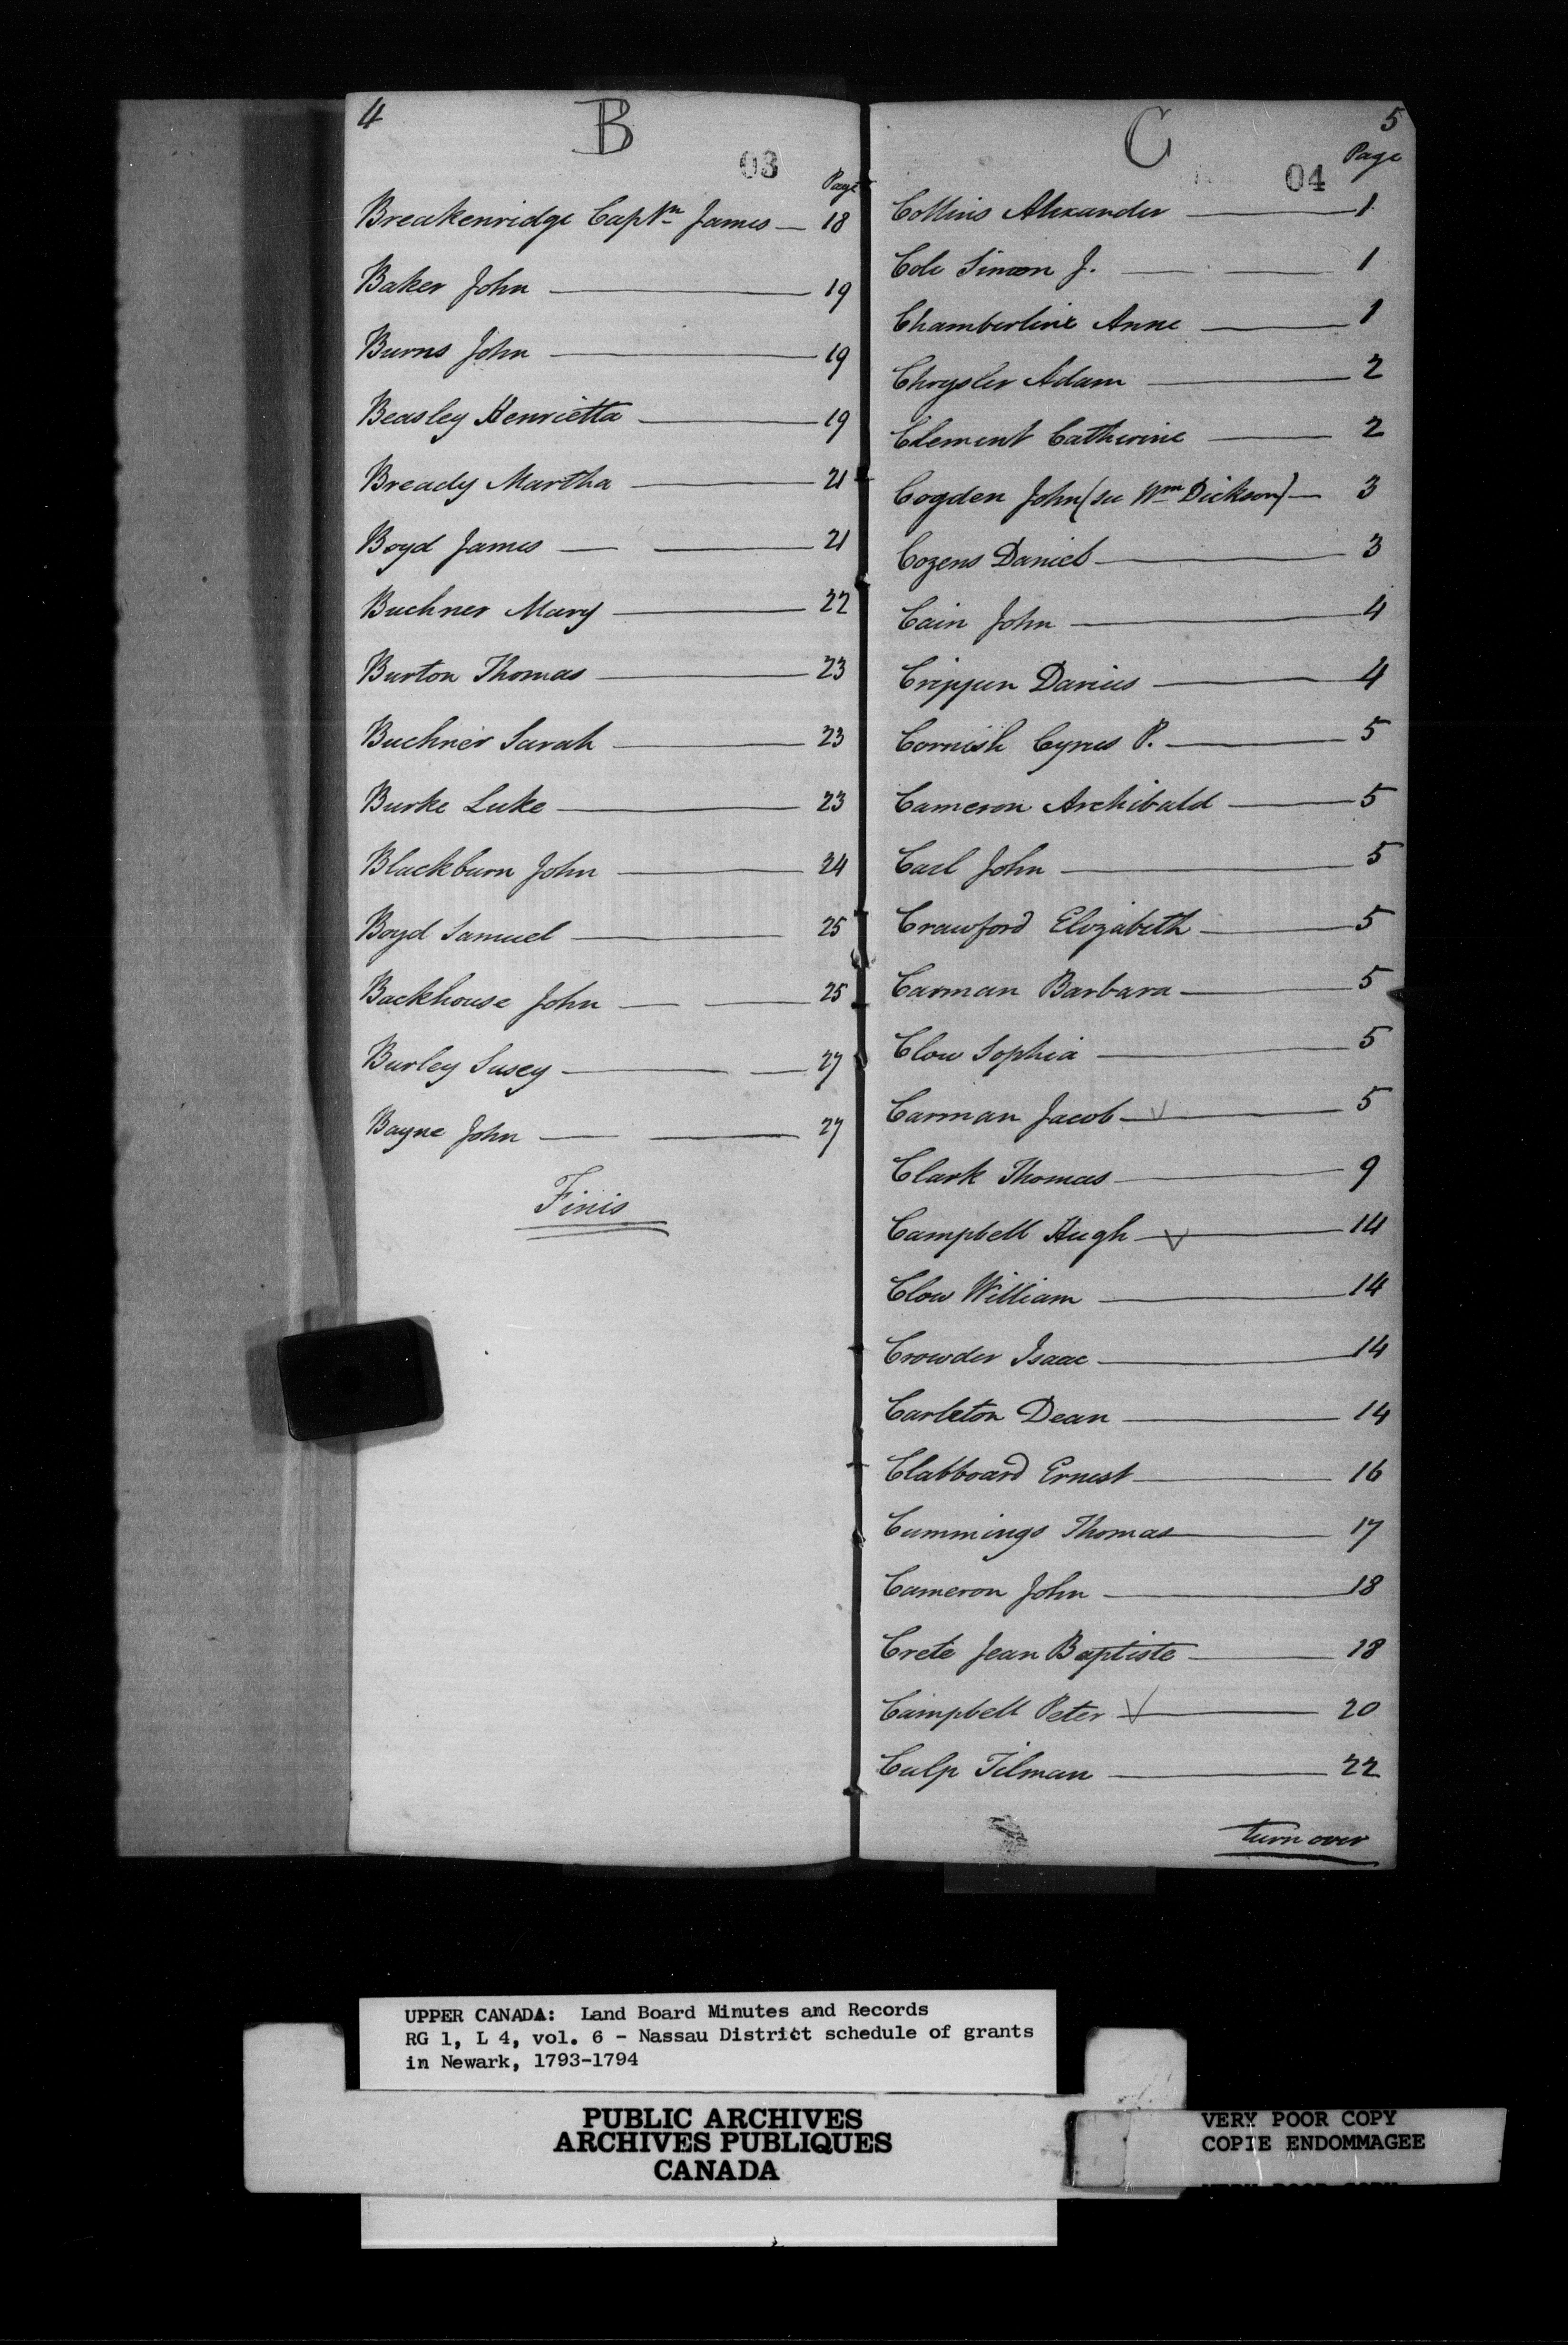 4
B
03
Page
Breakenridge Captn James — 18
Baker John — 19
Burns John — 19
Beasley Henrietta — 19
Bready Martha — 21
Boyd James — 21
Buchner Mary — 22
Burton Thomas — 23
Buchner Sarah — 23
Burke Luke — 23
Blackburn John — 24
Boyd Samuel — 25
Backhouse John — 25
Burley Susey — 27
Bayne John — 27
Finis
5
C
04
Page
Collins Alexander — 1
Cole Simon J. — 1
Chamberline Anne — 1
Chrysler Adam — 2
Clement Catherine — 2
Cogden John (see Wm Dickson) — 3
Cozens Daniel — 3
Cain John — 4
Crippen Darius — 4
Cornish Cyrus P. — 5
Cameron Archibald — 5
Carl John — 5
Crawford Elizabeth — 5
Carman Barbara — 5
Clow Sophia — 5
Carman Jacob — 5
Clark Thomas — 9
Campbell Hugh — 14
Clow William — 14
Crowder Isaac — 14
Carleton Dean — 14
Clabboard Ernest — 16
Cummings Thomas — 17
Cameron John — 18
Crete Jean Baptiste — 18
Campbell Peter — 20
Culp Tilman — 22
turn over
UPPER CANADA: Land Board Minutes and Records
RG 1, L 4, vol. 6 - Nassau District schedule of grants
in Newark, 1793-1794
PUBLIC ARCHIVES
ARCHIVES PUBLIQUES
CANADA
VERY POOR COPY
COPIE ENDOMMAGEE